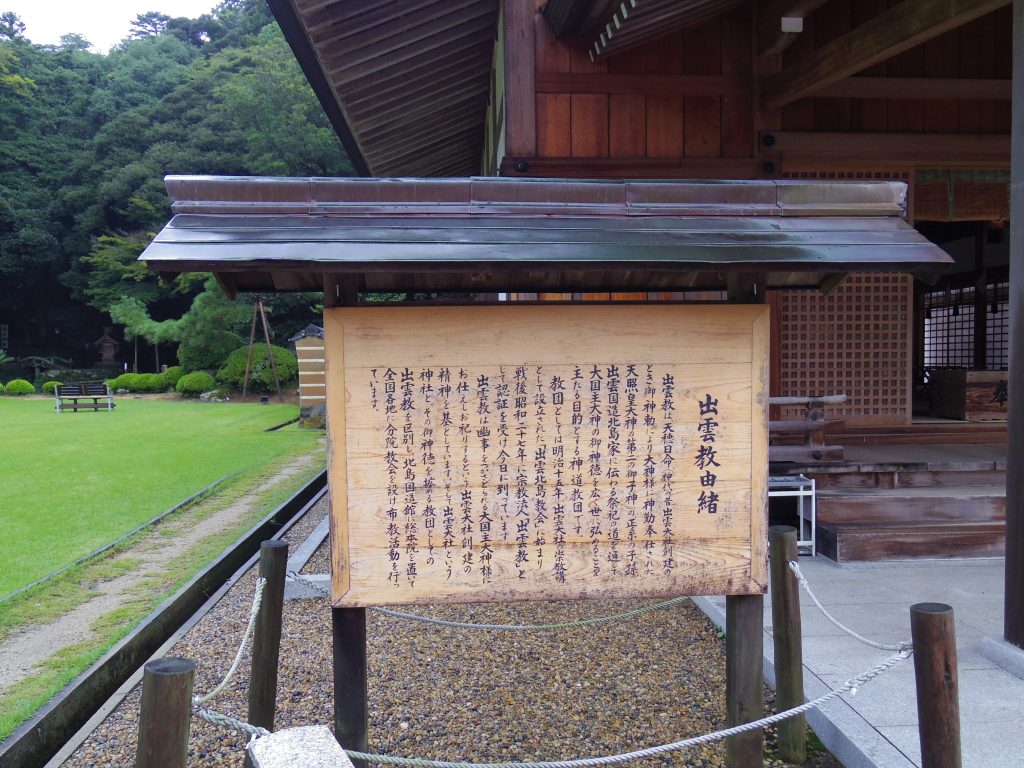 出雲教由緒
出雲教は天穂日命(神代の昔出雲大社創建の
とき御神勅により大神様に神勤奉仕された
天照皇大神の第二の御子神)の正系の子孫
出雲国造北島家に伝わる祭祀の道を通して
大国主大神の御神徳を広く世に弘めることを
主たる目的とする神道教団です。
教団としては明治十五年「出雲大社
として設立された「出雲北島教会」に始まり
戦後昭和二十七年に宗教法人「出雲教」と
して認証を受け今日に到っています。
出雲教は幽事をつかさどられる大国主大神様に
お仕えしお祀りするという出雲大社創建の
精神を基としていますそして出雲大社という
神社とその御神徳を弘める教団としての
出雲教を区別し北島国造館に総本院を置いて
全国各地に分院教会を設け布教活動を行っ
ています。